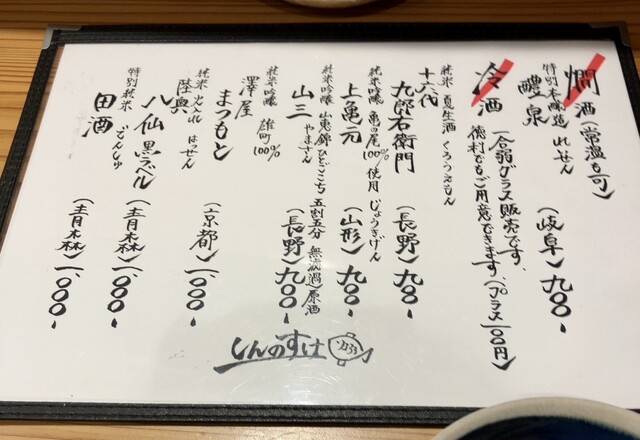 燗酒(常温も可)
特別本醸造 れいせん
醴泉 (岐阜)九〇〇-
冷酒 一合弱グラス販売です。
徳利でもご用意できます。(プラス一〇〇円)
純米 夏生酒 くろうえもん
十六代
九郎右衛門 (長野)九〇〇-
純米吟醸 亀の尾100%使用 じょうきげん
上亀元 (山形)九〇〇-
純米吟醸 山恵錦 ひとごこち 五割五分 無濾過原酒
やまさん
山三 (長野)九〇〇-
純米吟醸 雄町100%
澤屋
まつもと (京都)一、〇〇〇-
純米 はっせん
陸奥
八仙黒ラベル (青森)一、〇〇〇-
特別純米 でんしゅ
田酒 (青森)一、〇〇〇-
しんのすけ